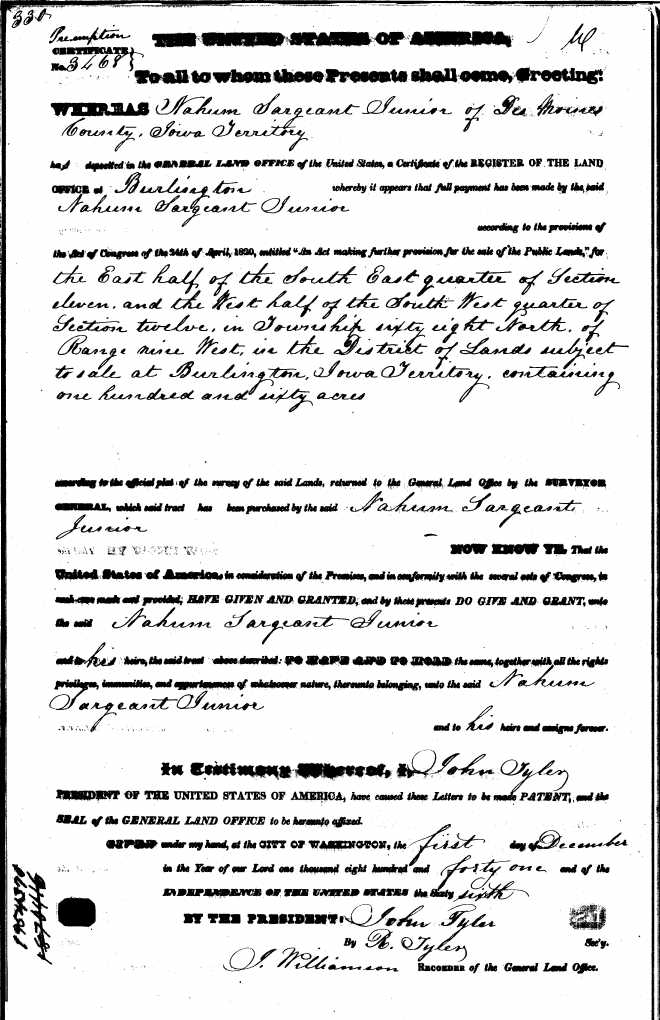 330
Pre-emption
CERTIFICATE
No. 3468
THE UNITED STATES OF AMERICA,
To all to whom these Presents shall come, Greeting:
WHEREAS Nahum Sargeant Junior of Des Moines
County, Iowa Territory
has deposited in the GENERAL LAND OFFICE of the United States, a Certificate of the REGISTER OF THE LAND
OFFICE at Burlington whereby it appears that full payment has been made by the said
Nahum Sargeant Junior
according to the provisions of
the Act of Congress of the 24th of April, 1820, entitled "An Act making further provision for the sale of the Public Lands," for
the East half of the South East quarter of Section
eleven, and the West half of the South West quarter of
Section twelve, in Township sixty eight North, of
Range nine West, in the District of Lands subject
to sale at Burlington, Iowa Territory, containing
one hundred and sixty acres
according to the official plat of the survey of the said Lands, returned to the General Land Office by the SURVEYOR
GENERAL, which said tract has been purchased by the said Nahum Sargeant
Junior
NOW KNOW YE, That the
United States of America, in consideration of the Premises, and in conformity with the several acts of Congress, in
such case made and provided, HAVE GIVEN AND GRANTED, and by these presents DO GIVE AND GRANT, unto
the said Nahum Sargeant Junior
and to his heirs, the said tract above described: TO HAVE AND TO HOLD the same, together with all the rights
privileges, immunities, and appurtenances of whatsoever nature, thereunto belonging, unto the said Nahum
Sargeant Junior
and to his heirs and assigns forever.
In Testimony Whereof, I, John Tyler
PRESIDENT OF THE UNITED STATES OF AMERICA, have caused these Letters to be made PATENT, and the
SEAL of the GENERAL LAND OFFICE to be hereunto affixed.
GIVEN under my hand, at the CITY OF WASHINGTON, the first day of December
in the Year of our Lord one thousand eight hundred and forty one and of the
INDEPENDENCE OF THE UNITED STATES the Sixty sixth
BY THE PRESIDENT: John Tyler
By R. Tyler Sec'y.
J. Williamson RECORDER of the General Land Office.